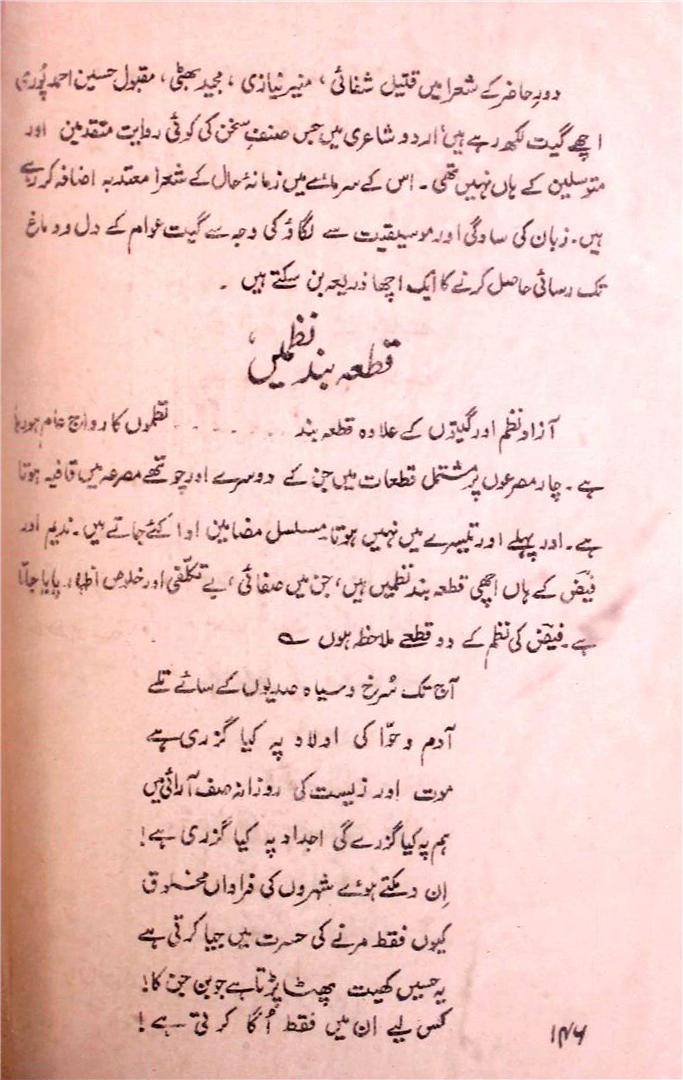 دورِ حاضر کے شعرا میں قتیل شفائی ، منیر نیازی ، مجید بھٹی ، مقبول حسین احمد پوری
اچھے گیت لکھ رہے ہیں اردو شاعری میں جس صنفِ سخن کی کوئی روایت متقدمین اور
متوسلین کے ہاں نہیں تھی ۔ اس کے سرمائے میں زمانۂ حال کے شعرا معتد بہ اضافہ کر رہے
ہیں ۔ زبان کی سادگی اور موسیقیت سے لگاؤ کی وجہ سے گیت عوام کے دل و دماغ
تک رسائی حاصل کرنے کا ایک اچھا ذریعہ بن سکتے ہیں ۔
قطعہ بند نظمیں
آزاد نظم اور گیتوں کے علاوہ قطعہ بند ۔ ۔ ۔ ۔ ۔ ۔ نظموں کا رواج عام ہو رہا
ہے ۔ چار مصرعوں پر مشتمل قطعات میں جن کے دوسرے اور چوتھے مصرعہ میں قافیہ ہوتا
ہے ۔ اور پہلے اور تیسرے میں نہیں ہوتا مسلسل مضامین ادا کئے جاتے ہیں ۔ ندیم اور
فیض کے ہاں اچھی قطعہ بند نظمیں ہیں ، جن میں صفائی ، بے تکلفی اور خلوص اظہار پایا جاتا
ہے ۔ فیض کی نظم کے دو قطعے ملاحظہ ہوں ؎
آج تک سُرخ و سیاہ صدیوں کے سائے تلے
آدم و حوّا کی اولاد پہ کیا گزری ہے
موت اور زیست کی روزانہ صف آرائی میں
ہم پہ کیا گزرے گی اجداد پہ کیا گزری ہے !
اِن دمکتے ہوئے شہروں کی فراواں مخلوق
کیوں فقط مرنے کی حسرت میں جیا کرتی ہے
یہ حسیں کھیت پھٹا پڑتا ہے جوبن جن کا !
کس لیے ان میں فقط اُگا کرتی ہے !
۱۴۶